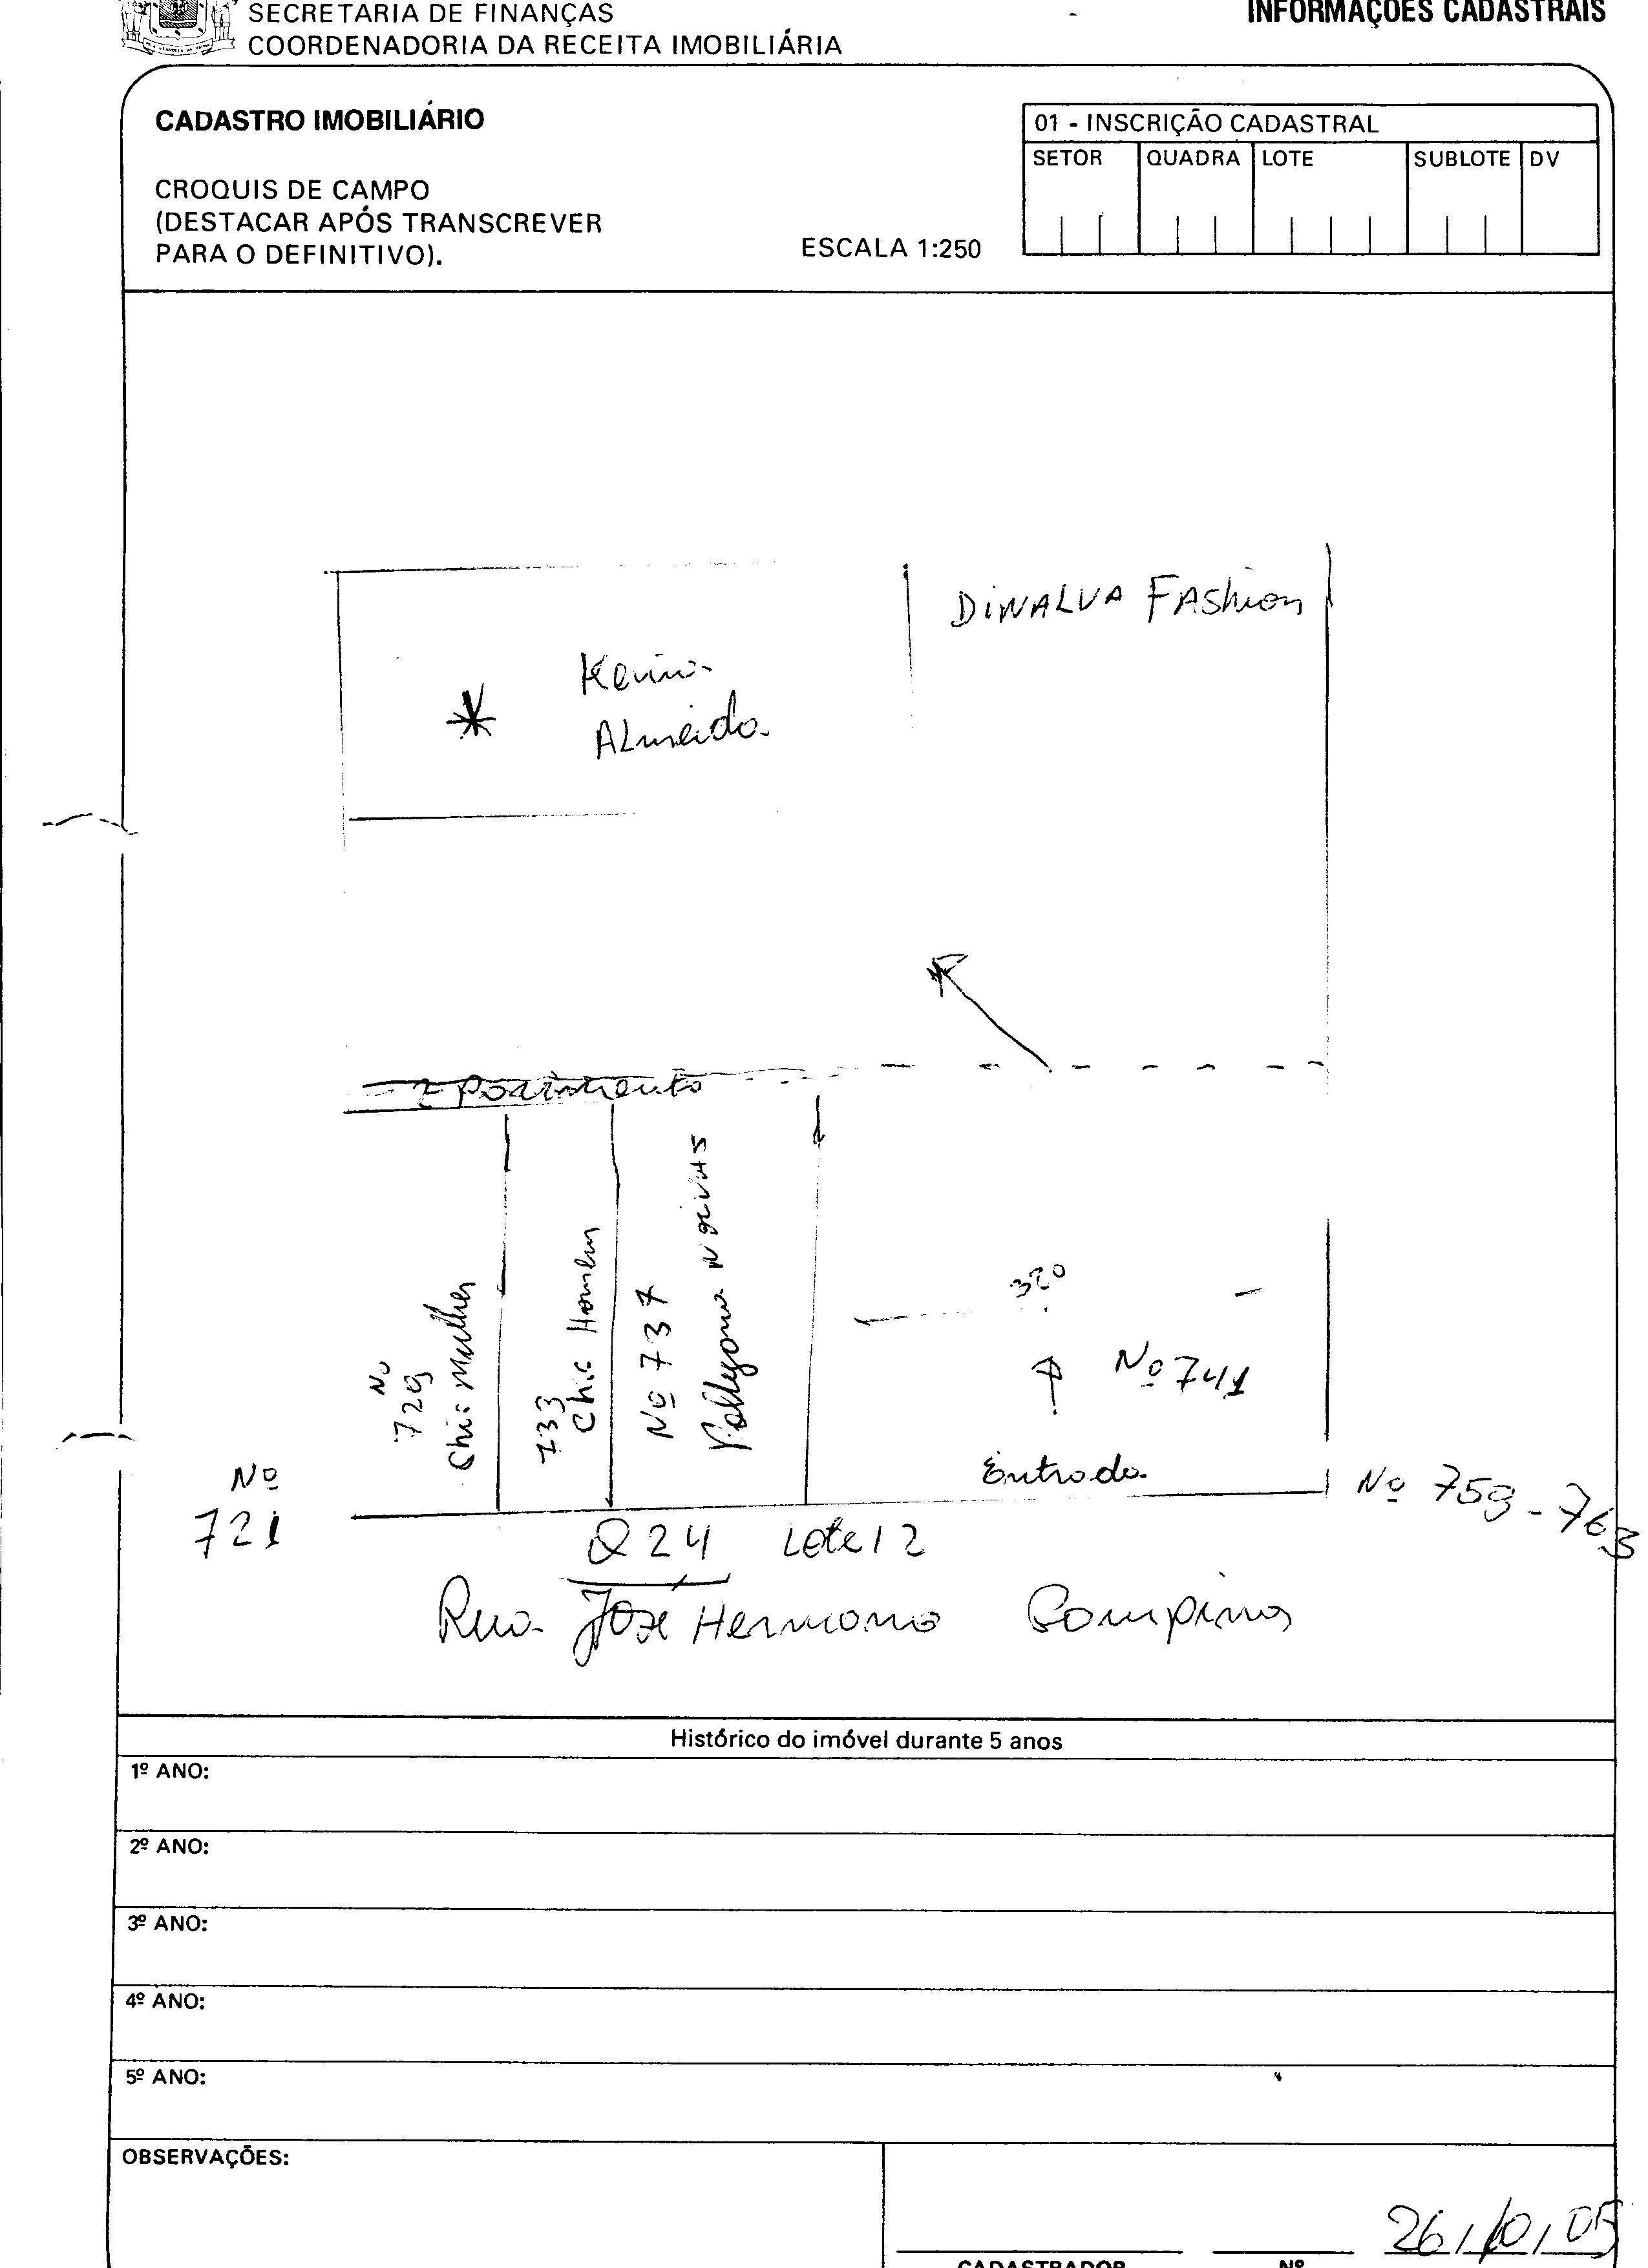 SECRETARIA DE FINANÇAS
COORDENADORIA DA RECEITA IMOBILIÁRIA
INFORMAÇÕES CADASTRAIS
CADASTRO IMOBILIÁRIO
CROQUIS DE CAMPO
(DESTACAR APÓS TRANSCREVER
PARA O DEFINITIVO).
ESCALA 1:250
01 - INSCRIÇÃO CADASTRAL
SETOR QUADRA LOTE SUBLOTE DV
DINALVA FAShion
Almeida
Nº
729
Chic Mulher
733
Chic Homem
Nº 737
Pollyana Noivas
320
Nº 741
Entrada
Nº
721
Nº 759-763
Q 24 Lote 12
Rua José Hermano
Histórico do imóvel durante 5 anos
1º ANO:
2º ANO:
3º ANO:
4º ANO:
5º ANO:
OBSERVAÇÕES:
26/10/05
CADASTRADOR Nº